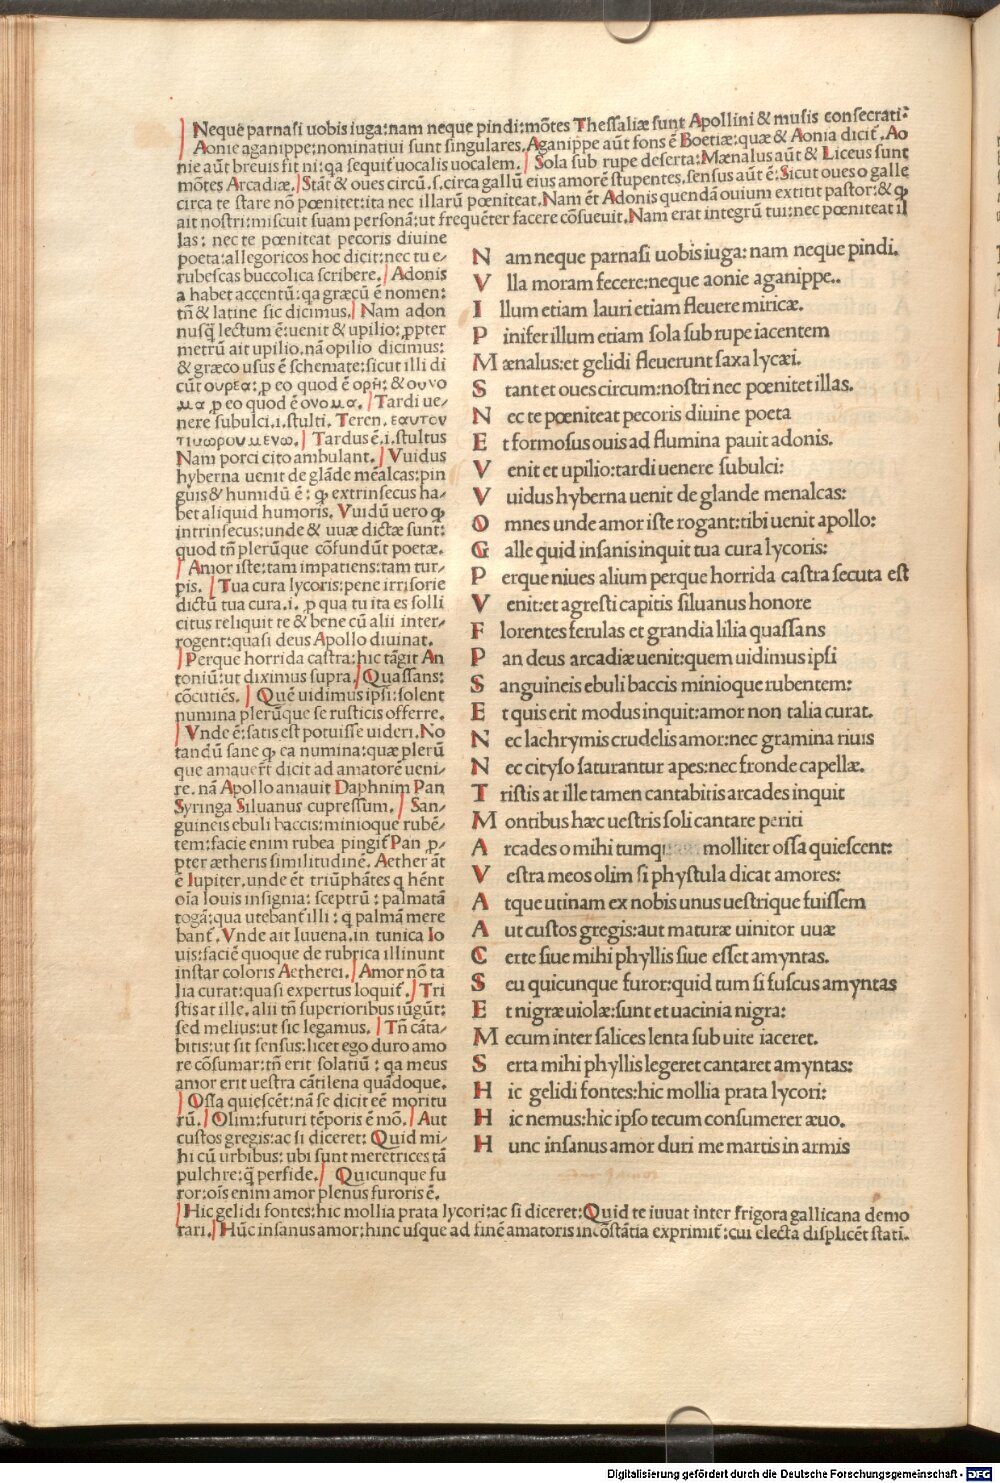 Neque parnasi uobis iuga:nam neque pindi:mōtes Thessaliæ sunt Apollini & musis consecrati:
Aonie aganippe:nominatiui sunt singulares.Aganippe aūt fons ē Boetiæ:quæ & Aonia dicit̄.Ao
nie aūt breuis sit ni:qa sequit̄ uocalis uocalem. Sola sub rupe deserta:Mænalus aūt & Liceus sunt
mōtes Arcadiæ.Stāt & oues circū.s.circa gallū eius amorē stupentes.sensus aūt ē:Sicut oues o galle
circa te stare nō pœnitet:ita nec illarū pœniteat.Nam ēt Adonis quendā ouium extitit pastor:& ꝙ
ait nostri:miscuit suam personā:ut frequēter facere cōsueuit.Nam erat integrū tui:nec pœniteat il
las: nec te pœniteat pecoris diuine
poeta:allegoricos hoc dicit:nec tu e/
rubescas buccolica scribere. Adonis
a habet accentū:qa græcū ē nomen:
tn̄ & latine sic dicimus. Nam adon
nusq̄ lectum ē:uenit & upilio:ꝓpter
metrū ait upilio.nā opilio dicimus:
& græco usus ē schemate:sicut illi di
cūt ουρεα:ꝓ eo quod ē ορη:& ουνο
μα ꝓ eo quod ē ονομα. Tardi ue/
nere subulci.i.stulti. Teren. εαυτον
τιμωρουμενω. Tardus ē.i.stultus
Nam porci cito ambulant. Vuidus
hyberna uenit de glāde mēalcas:pin
guis & humidū ē: ꝙ extrinsecus ha/
bet aliquid humoris. Vuidū uero ꝙ
intrinsecus:unde & uuæ dictæ sunt:
quod tn̄ plerūque cōfundūt poetæ.
Amor iste:tam impatiens:tam tur/
pis. Tua cura lycoris:pene irrisorie
dictū tua cura.i. ꝓ qua tu ita es solli
citus reliquit te & bene cū alii inter/
rogent:quasi deus Apollo diuinat.
Perque horrida castra:hic tāgit An
toniū:ut diximus supra. Quassans:
cōcutiēs. Quē uidimus ipsi:solent
numina plerūque se rusticis offerre.
Vnde ē:satis est potuisse uideri.No
tandū sane ꝙ ea numina:quæ plerū
que amauert̄ dicit ad amatorē ueni/
re. nā Apollo amauit Daphnim Pan
Syringa Siluanus cupressum. San/
guineis ebuli baccis:minioque rubē/
tem:facie enim rubea pingit̄ Pan ꝓ/
pter ætheris similitudinē. Aether āt
ē Iupiter.unde ēt triūphātes q hēnt
oīa Iouis insignia: sceptrū : palmatā
togā:qua utebant̄ illi : q palmā mere
bant̄.Vnde ait Iuuena.in tunica Io
uis:faciē quoque de rubrica illinunt
instar coloris Aetherei. Amor nō ta
lia curat:quasi expertus loquit̄. Tri
stis at ille. alii tn̄ superioribus iūgūt:
sed melius:ut sic legamus. Tn̄ cāta/
bitis:ut sit sensus:licet ego duro amo
re cōsumar:tn̄ erit solatiū : qa meus
amor erit uestra cātilena quādoque.
Ossa quiescēt:nā se dicit eē moritu
rū. Olim:futuri tēporis ē mō. Aut
custos gregis:ac si diceret: Quid mi/
hi cū urbibus: ubi sunt meretrices tā
pulchre:q̄ perfide. Quicunque fu
ror:oīs enim amor plenus furoris ē.
N am neque parnasi uobis iuga: nam neque pindi.
V lla moram fecere:neque aonie aganippe..
I llum etiam lauri etiam fleuere miricæ.
P inifer illum etiam sola sub rupe iacentem
M ænalus:et gelidi fleuerunt saxa lycæi.
S tant et oues circum:nostri nec pœnitet illas.
N ec te pœniteat pecoris diuine poeta
E t formosus ouis ad flumina pauit adonis.
V enit et upilio:tardi uenere subulci:
V uidus hyberna uenit de glande menalcas:
O mnes unde amor iste rogant:tibi uenit apollo:
G alle quid insanis inquit tua cura lycoris:
P erque niues alium perque horrida castra secuta est
V enit:et agresti capitis siluanus honore
F lorentes ferulas et grandia lilia quassans
P an deus arcadiæ uenit:quem uidimus ipsi
S anguineis ebuli baccis minioque rubentem:
E t quis erit modus inquit:amor non talia curat.
N ec lachrymis crudelis amor:nec gramina riuis
N ec cityso saturantur apes:nec fronde capellæ.
T ristis at ille tamen cantabitis arcades inquit
M ontibus hæc uestris soli cantare periti
A rcades o mihi tum molliter ossa quiescent:
V estra meos olim si phystula dicat amores:
A tque utinam ex nobis unus uestrique fuissem
A ut custos gregis:aut maturæ uinitor uuæ
C erte siue mihi phyllis siue esset amyntas.
S eu quicunque furor:quid tum si fuscus amyntas
E t nigræ uiolæ:sunt et uacinia nigra:
M ecum inter salices lenta sub uite iaceret.
S erta mihi phyllis legeret cantaret amyntas:
H ic gelidi fontes:hic mollia prata lycori:
H ic nemus:hic ipso tecum consumerer æuo.
H unc insanus amor duri me martis in armis
Hic gelidi fontes:hic mollia prata lycori:ac si diceret:Quid te iuuat inter frigora gallicana demo
rari. Hūc insanus amor:hinc usque ad finē amatoris incōstātia exprimit̄:cui electa displicēt stati.
Digitalisierung gefördert durch die Deutsche Forschungsgemeinschaft - DFG